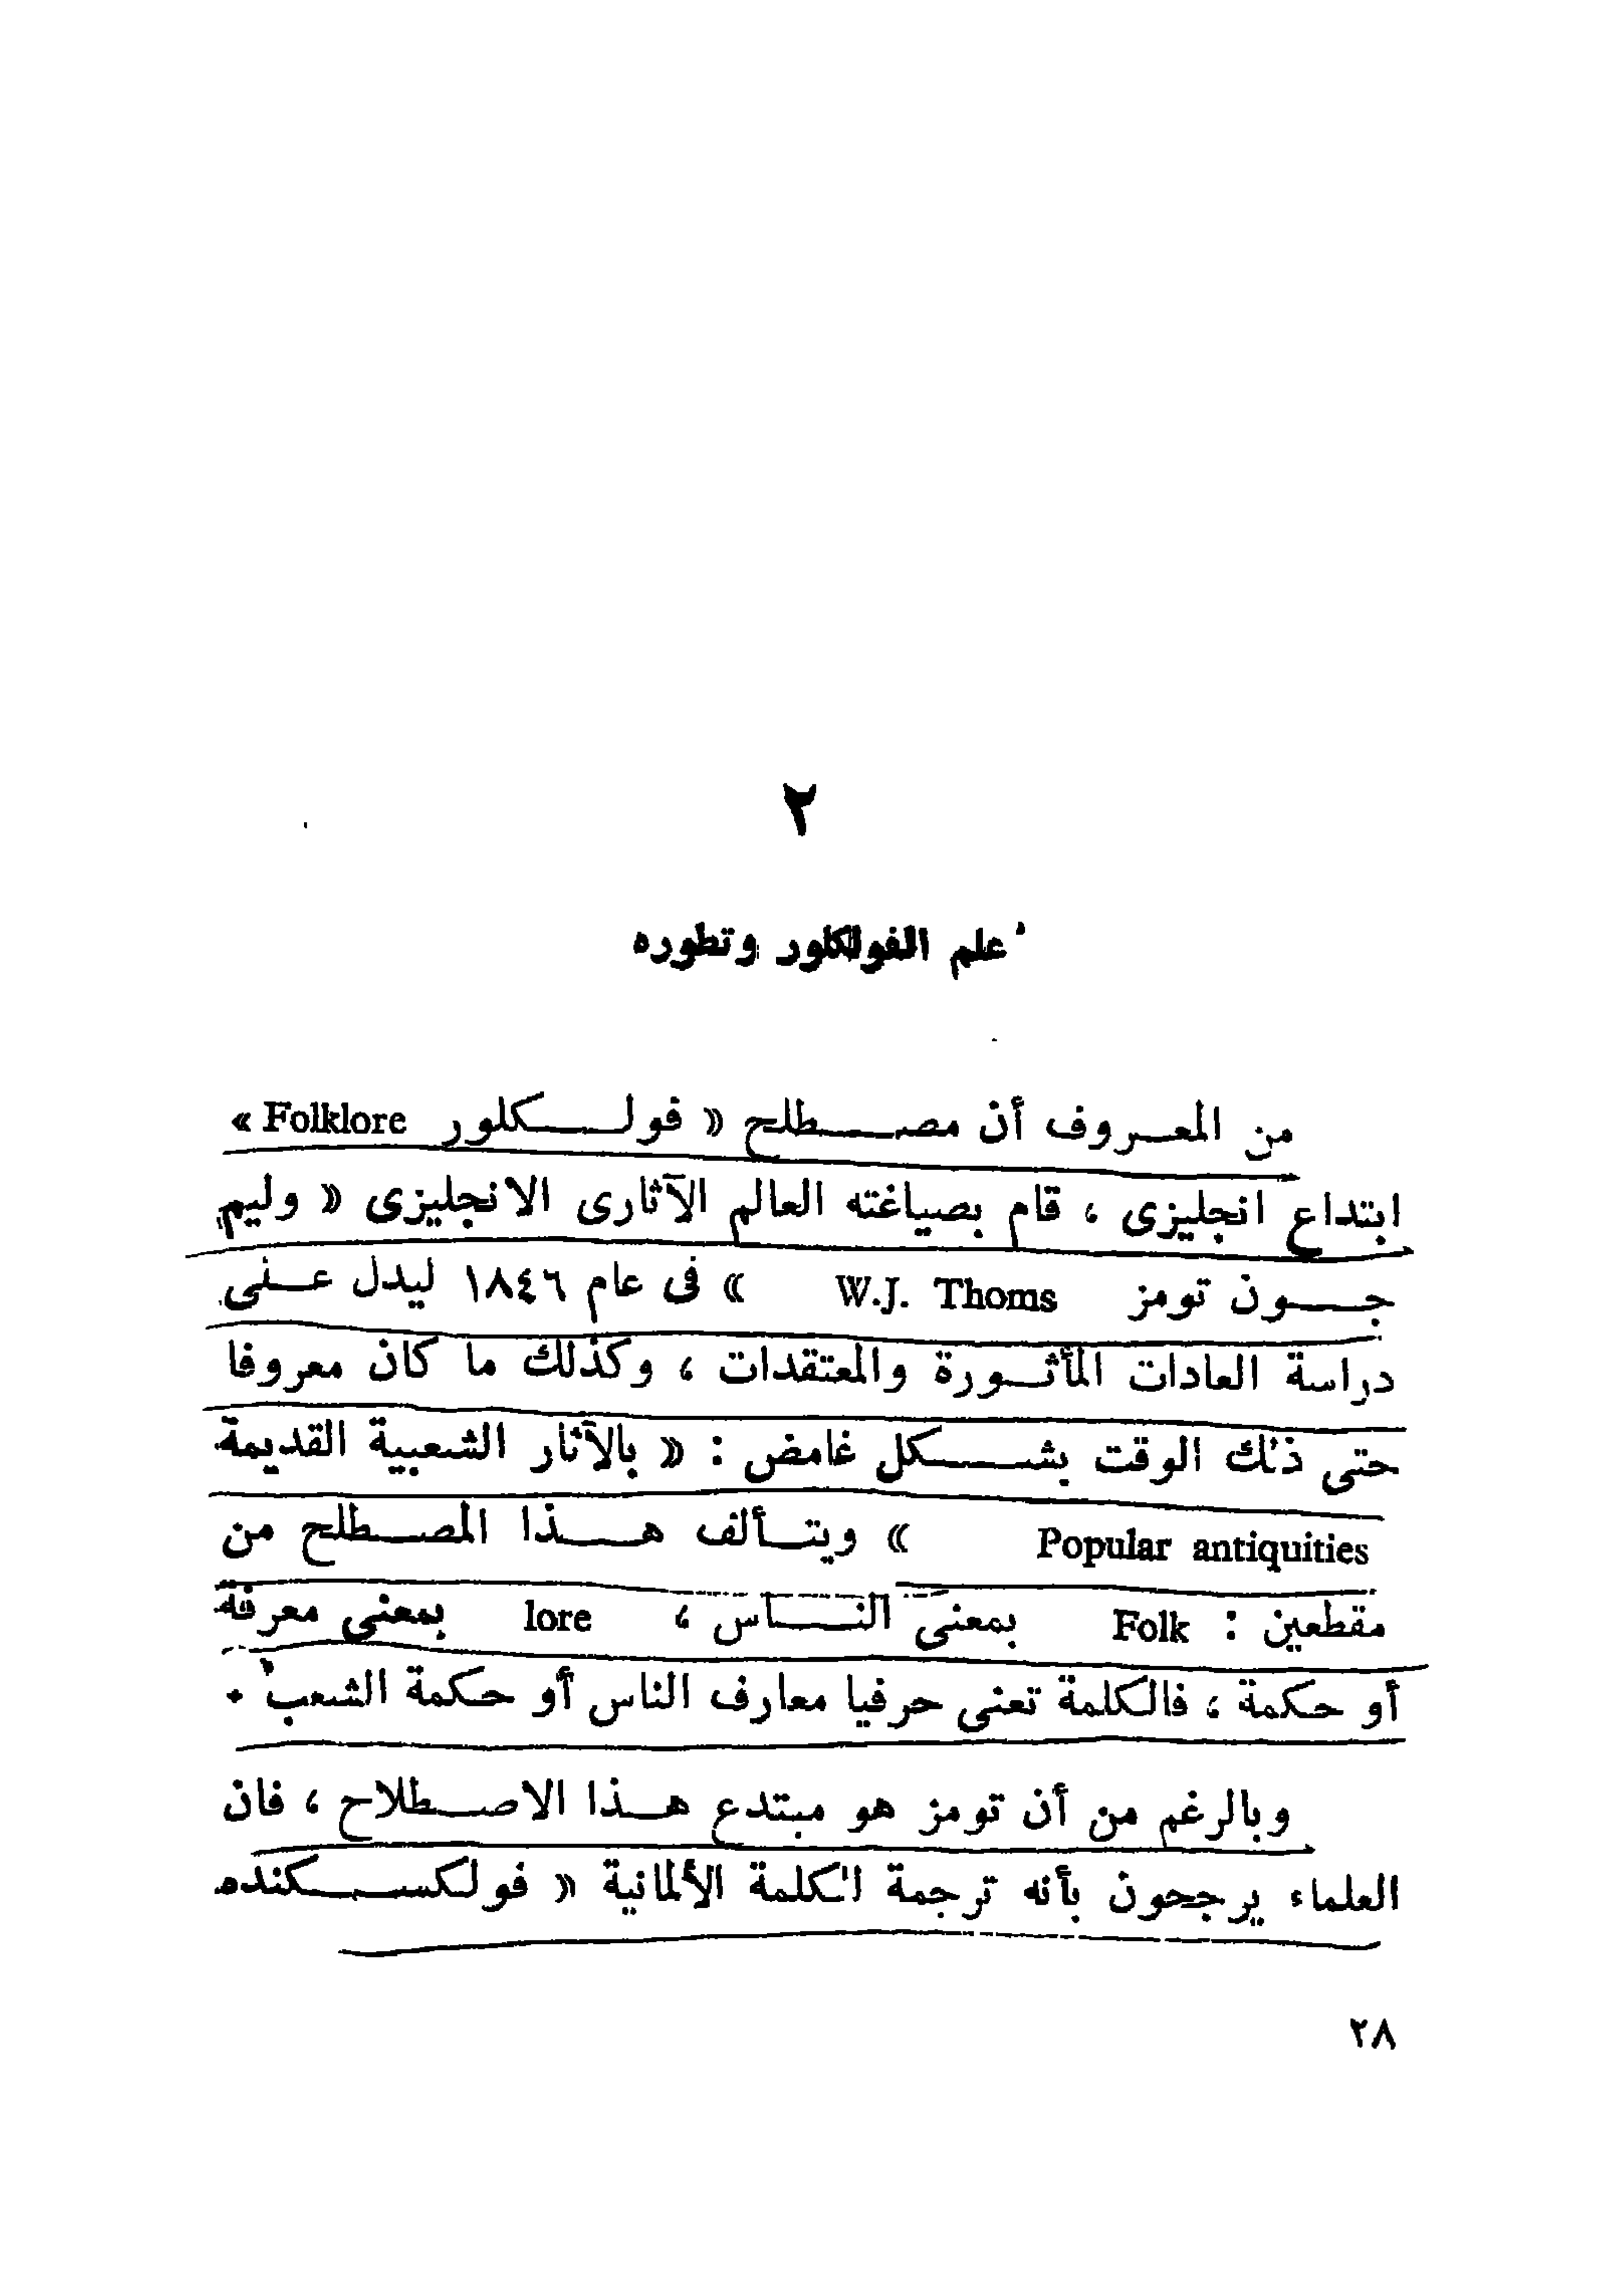 ٢
علم الفولكلور وتطوره
من المعروف أن مصطلح « فولكلور Folklore »
ابتداع انجليزى ، قام بصياغته العالم الآثارى الانجليزى « وليم
جون تومز W.J. Thoms » فى عام ١٨٤٦ ليدل على
دراسة العادات المأثورة والمعتقدات ، وكذلك ما كان معروفا
حتى ذلك الوقت بشكل غامض : « بالآثار الشعبية القديمة
Popular antiquities » ويتألف هذا المصطلح من
مقطعين : Folk بمعنى الناس ، lore بمعنى معرفة
أو حكمة ، فالكلمة تعنى حرفيا معارف الناس أو حكمة الشعب .
وبالرغم من أن تومز هو مبتدع هذا الاصطلاح ، فان
العلماء يرجحون بأنه ترجمة الكلمة الألمانية « فولكسكنده
٢٨